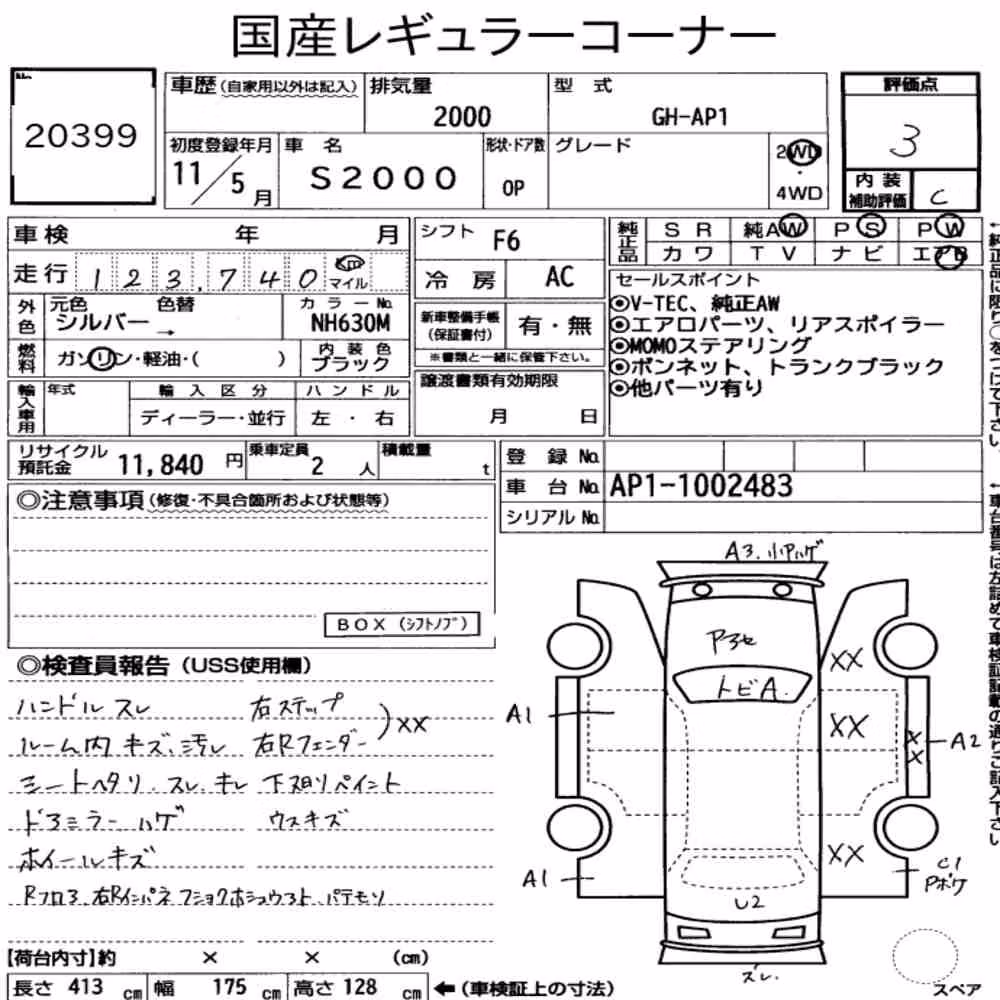 国産レギュラーコーナー
20399
車歴(自家用以外は記入) 排気量 2000 型式 GH-AP1
評価点 3
内装補助評価 C
初度登録年月 11/5月 車名 S2000 形状・ドア数 OP グレード 2WD・4WD
車検 年 月
走行 123,740 Km マイル
外色 元色 シルバー → 色替 カラーNo. NH630M
燃料 ガソリン・軽油・( ) 内装色 ブラック
輸入車用 年式 輸入区分 ディーラー・並行 ハンドル 左・右
シフト F6
冷房 AC
新車整備手帳(保証書付) 有・無
※書類と一緒に保管下さい。
譲渡書類有効期限
月 日
純正品 SR 純AW PS PW
カワ TV ナビ エアB
セールスポイント
◉V-TEC、純正AW
◉エアロパーツ、リアスポイラー
◉MOMOステアリング
◉ボンネット、トランクブラック
◉他パーツ有り
リサイクル預託金 11,840円 乗車定員 2人 積載量 t
登録No.
車台No. AP1-1002483
シリアルNo.
◎注意事項(修復・不具合箇所および状態等)
BOX (シフトノブ)
◎検査員報告(USS使用欄)
ハンドルスレ 右ステップ
ルーム内キズ、汚レ 右Rフェンダー )XX
シートヘタリ、スレ、キレ 下廻りペイント
ドアミラーハゲ ウスキズ
ホイールキズ
A3.小Pハゲ
トビA.
XX
A1
XX
XX
A2
XX
A1
C1
Pボケ
U2
スレ.
スペア
【荷台内寸】約 × × (cm)
長さ 413 cm 幅 175 cm 高さ 128 cm ←(車検証上の寸法)